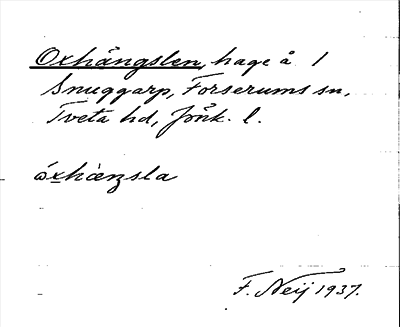 Oxhängslen, hage å 1
Snuggarp, Forserums sn,
Tveta hd, Jönk. l.
F. Neij 1937.